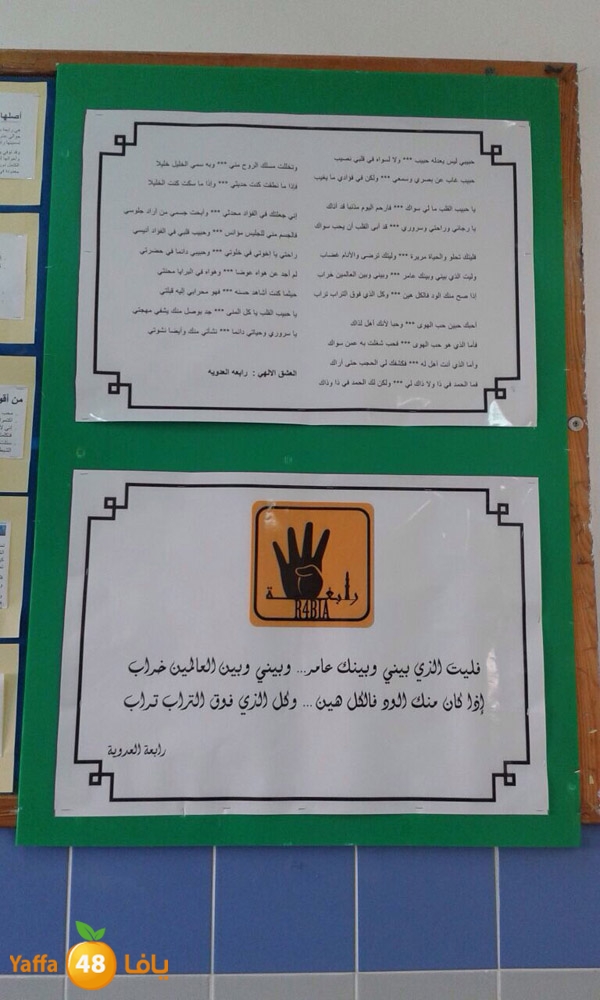 حبيبي ليس يعدله حبيب *** ولا لسواه في قلبي نصيب
حبيب غاب عن بصري وسمعي *** ولكن في فؤادي ما يغيب
يا حبيب القلب ما لي سواك *** فارحم اليوم مذنبا قد أتاك
يا رجائي وراحتي وسروري *** قد أبى القلب أن يحب سواك
فليتك تحلو والحياة مريرة *** وليتك ترضى والأنام غضاب
وليت الذي بيني وبينك عامر *** وبيني وبين العالمين خراب
إذا صح منك الود فالكل هين *** وكل الذي فوق التراب تراب
أحبك حبين حب الهوى *** وحبا لأنك أهل لذاك
فأما الذي هو حب الهوى *** فحب شغلت به عمن سواك
وأما الذي أنت أهل له *** فكشفك لي الحجب حتى أراك
فما الحمد في ذا ولا ذاك لي *** ولكن لك الحمد في ذا وذاك
وتخللت مسلك الروح مني *** وبه سمي الخليل خليلا
فإذا ما نطقت كنت حديثي *** وإذا ما سكت كنت الخليلا
إني جعلتك في الفؤاد محدثي *** وأبحت جسمي من أراد جلوسي
فالجسم مني للجليس مؤانس *** وحبيب قلبي في الفؤاد أنيسي
راحتي يا اخوتي في خلوتي *** وحبيبي دائما في حضرتي
لم أجد عن هواه عوضا *** وهواه في البرايا محنتي
حيثما كنت أشاهد حسنه *** فهو محرابي إليه قبلتي
يا حبيب القلب يا كل المنى *** جد بوصل منك يشفي مهجتي
يا سروري وحياتي دائما *** نشأتي منك وأيضا نشوتي
العشق الالهي : رابعه العدويه
رابعة
R4BIA
فليت الذي بيني وبينك عامر... وبيني وبين العالمين خراب
إذا كان منك الود فالكل هين ... وكل الذي فوق التراب تراب
رابعة العدوية
أصلها
من أقو
Yaffa 48 يافا